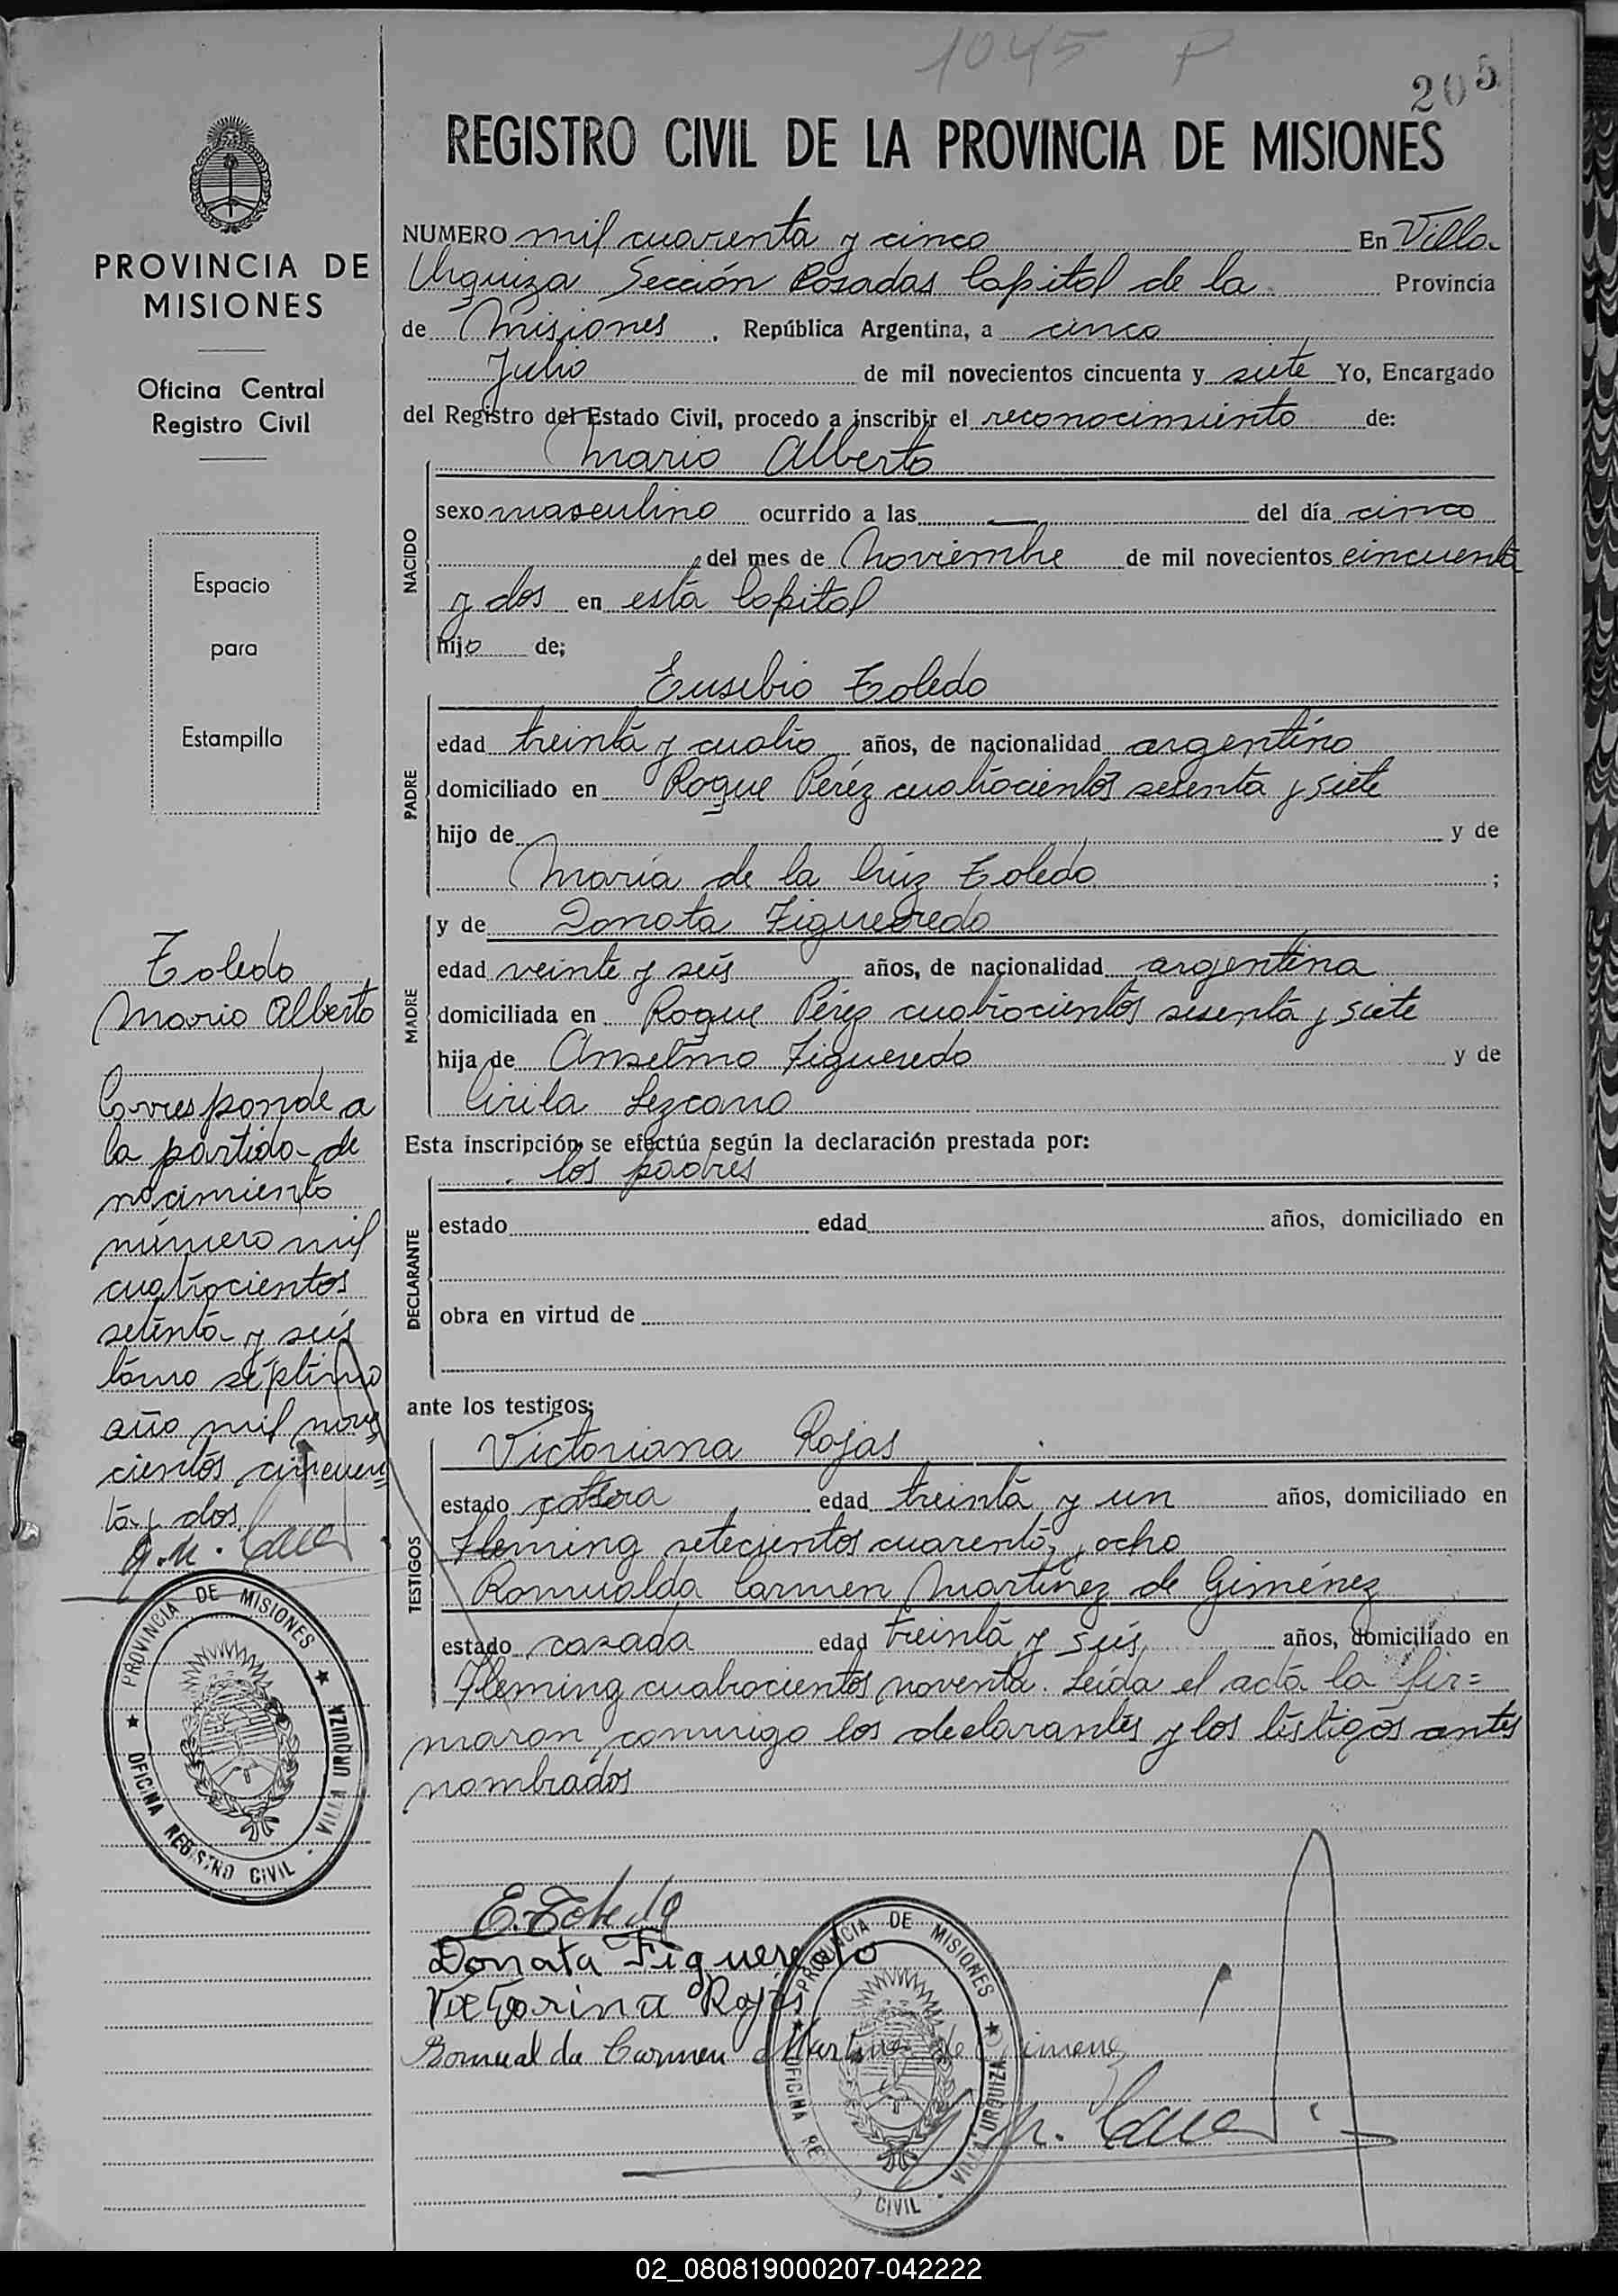 1045 P
205
REGISTRO CIVIL DE LA PROVINCIA DE MISIONES
PROVINCIA DE
MISIONES
Oficina Central
Registro Civil
Espacio
para
Estampilla
Toledo
Mario Alberto
Corresponde a
la partida de
nacimiento
número mil
cuatrocientos
setenta y seis
tomo séptimo
año mil nove
cientos cincuen=
ta y dos
PROVINCIA DE MISIONES
OFICINA REGISTRO CIVIL - VILLA URQUIZA
NUMERO mil cuarenta y cinco En Villa
Urquiza Sección Posadas Capital de la Provincia
de Misiones, República Argentina, a cinco
Julio de mil novecientos cincuenta y siete Yo, Encargado
del Registro del Estado Civil, procedo a inscribir el reconocimiento de:
Mario Alberto
NACIDO
sexo masculino ocurrido a las — del día cinco
del mes de Noviembre de mil novecientos cincuenta
y dos en esta Capital
hijo de;
Eusebio Toledo
PADRE
edad treinta y cuatro años, de nacionalidad argentino
domiciliado en Roque Pérez cuatrocientos sesenta y siete
hijo de y de
María de la Cruz Toledo ;
y de Donata Figueredo
MADRE
edad veinte y seis años, de nacionalidad argentina
domiciliada en Roque Pérez cuatrocientos sesenta y siete
hija de Anselmo Figueredo y de
Cirila Lezcano
Esta inscripción se efectúa según la declaración prestada por:
los padres
DECLARANTE
estado edad años, domiciliado en
obra en virtud de
ante los testigos;
Victoriana Rojas
TESTIGOS
estado edad treinta y un años, domiciliado en
Fleming setecientos cuarenta y ocho
Romualda Carmen Martínez de Giménez
estado casada edad treinta y seis años, domiciliado en
Fleming cuatrocientos noventa. Leída el acta la fir=
maron conmigo los declarantes y los testigos antes
nombrados
E. Toledo
Donata Figueredo
Victorina Rojas
Romualda Carmen Martinez de Gimenez
PROVINCIA DE MISIONES
OFICINA RE CIVIL - VILLA URQUIZA
02_080819000207-042222